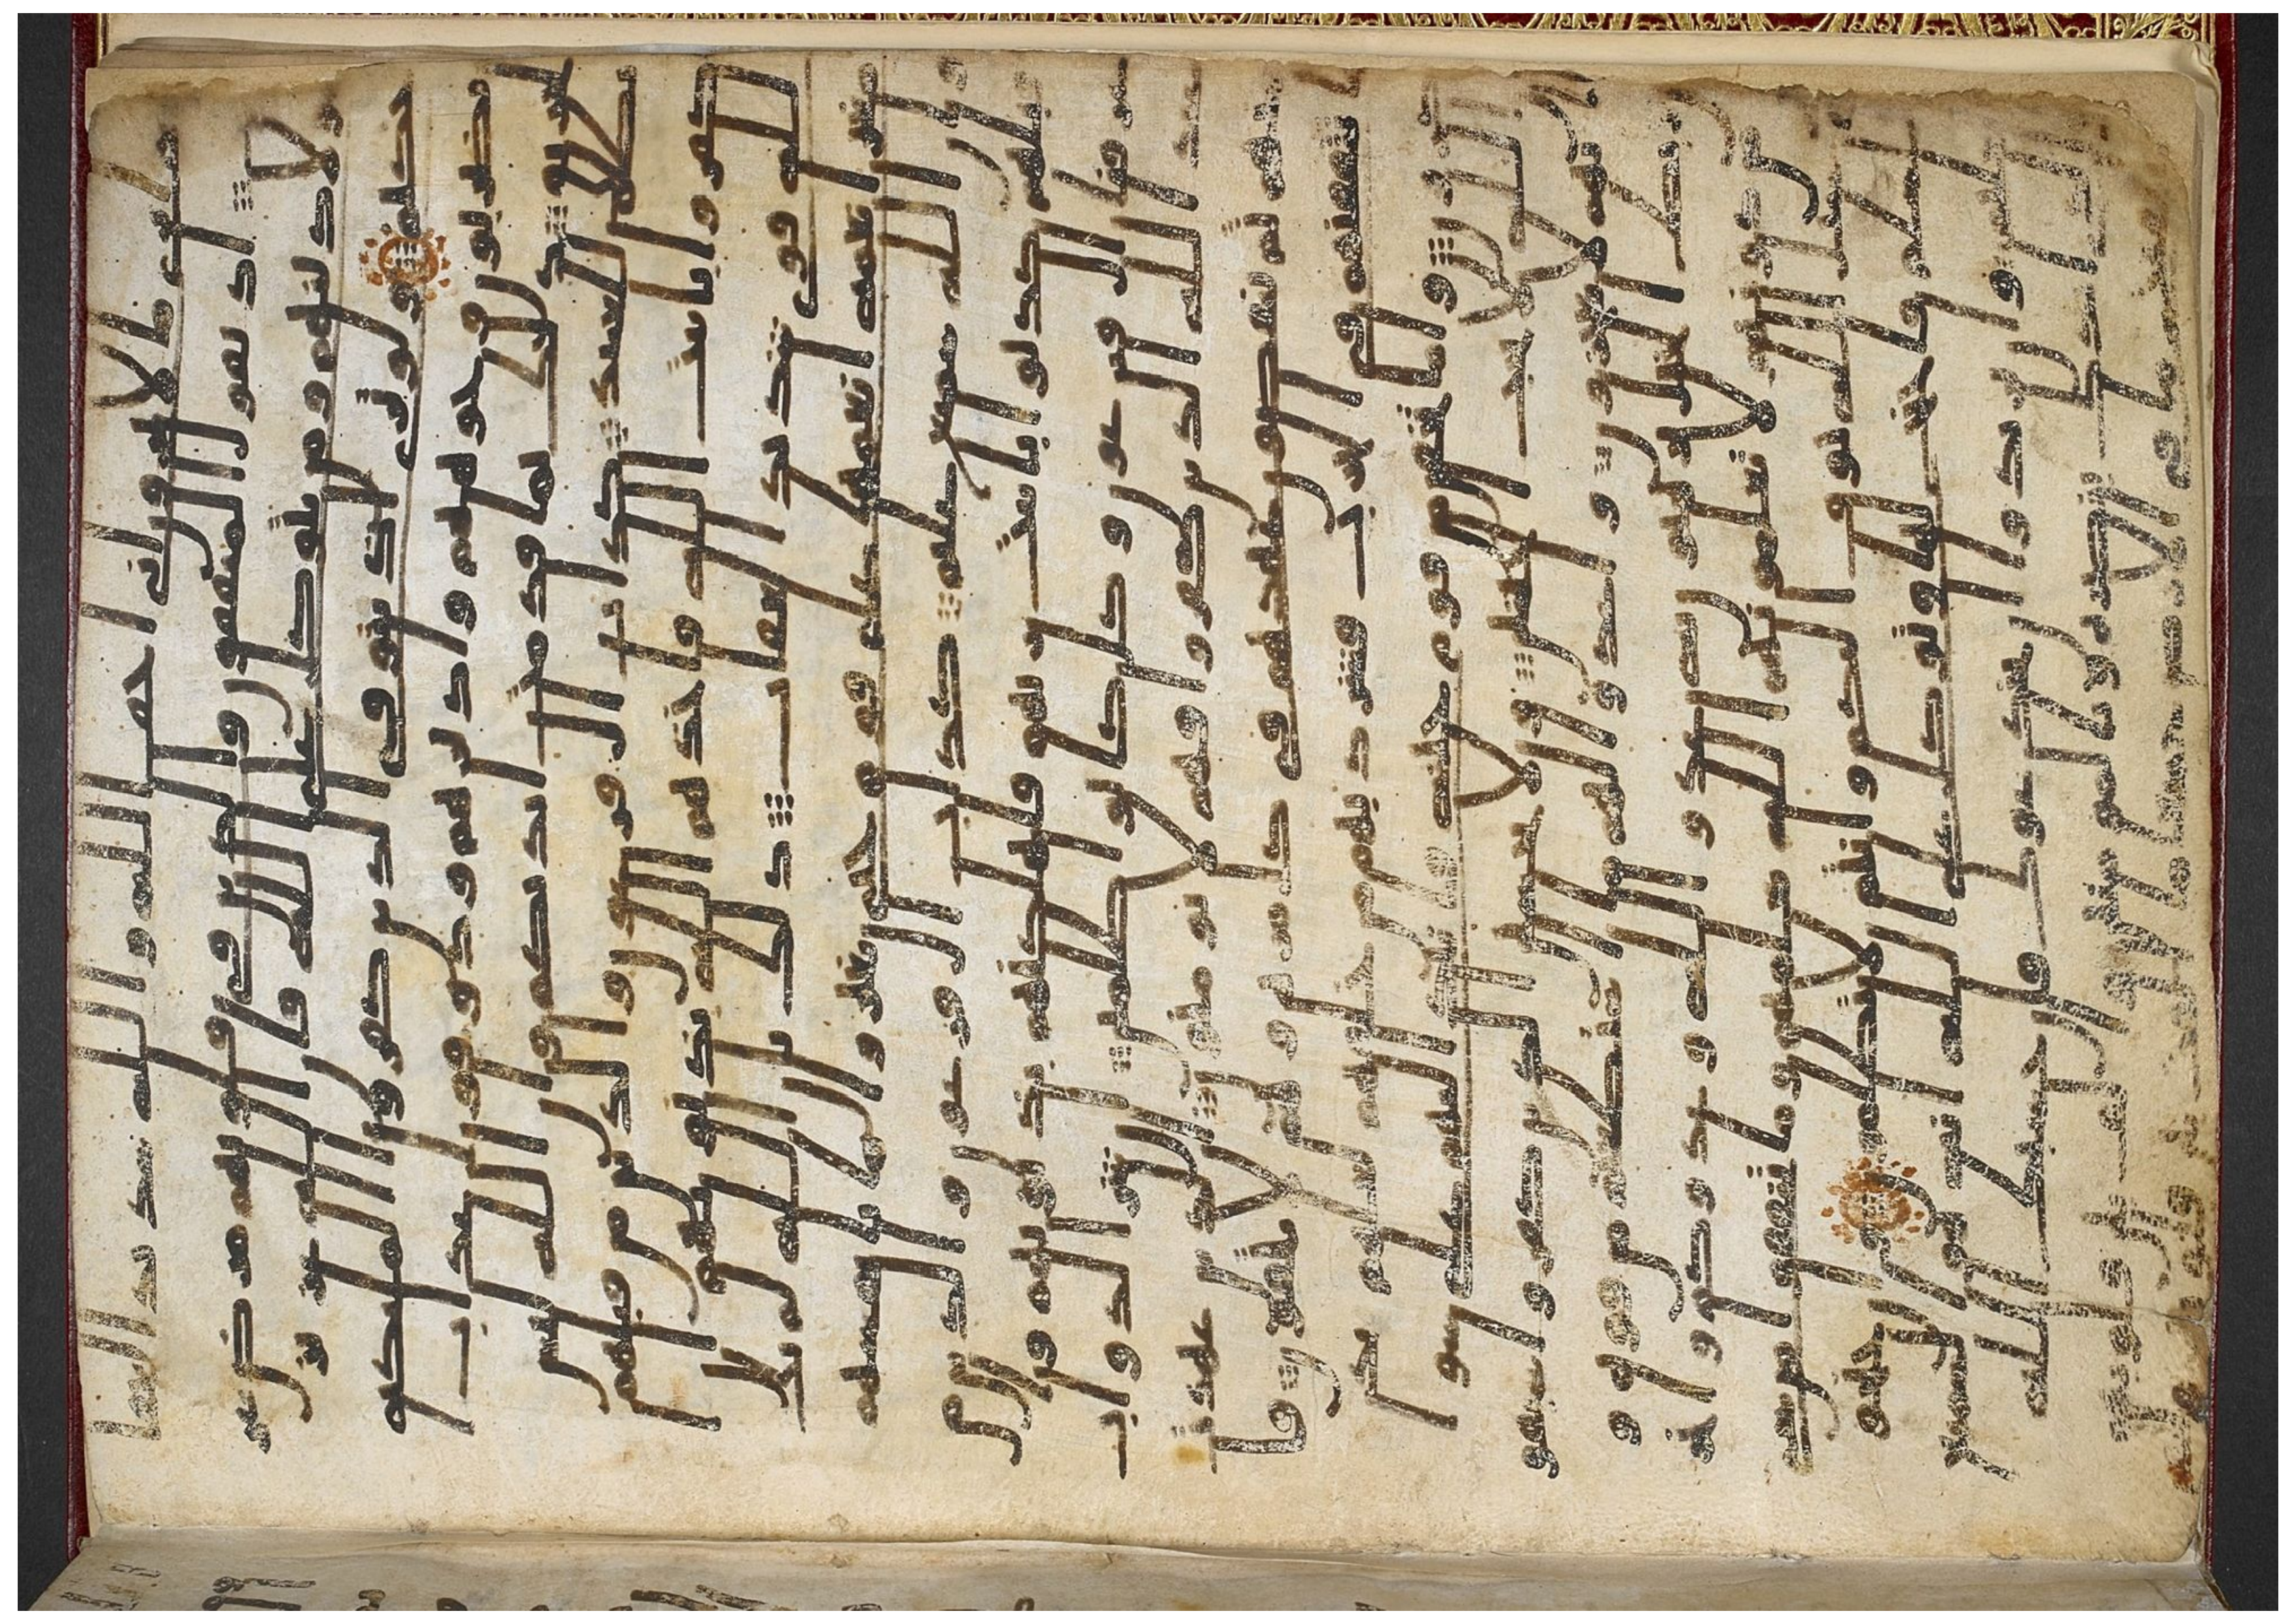 لا ترون اني اخاف الله والله شديد العقا
ب اذ يقول المنفقون والذين في قلوبهم مرض غر
هولا دينهم ومن يتوكل على الله فان الله عزيز
حكيم ولو ترى اذ يتوفى الذين كفروا الملئكه
يضربون وجوههم وادبرهم وذوقوا عذاب
الحريق ذلك بما قدمت ايديكم وان الله ليس
بظلم للعبيد كداب ال فرعون والذين من قبلهم
كفروا بايت الله فاخذهم الله بذنوبهم ان
الله قوي شديد العقاب ذلك بان الله لم يك
مغيرا نعمه انعمها على قوم حتى يغيروا ما بانفسهم
وان الله سميع عليم كداب ال فرعون والذين
من قبلهم كذبوا بايت ربهم فاهلكنهم بذنوبهم و
اغرقنا ال فرعون وكل كانوا ظلمين ان شر الدواب
عند الله الذين كفروا فهم لا يومنون الذين عهدت
منهم ثم ينقضون عهدهم في كل مره وهم لا يتقون فا
ما تثقفنهم في الحرب فشرد بهم من خلفهم لعلهم يذ
كرون واما تخافن من قوم خيانه فانبذ اليهم على سو
ا ان الله لا يحب الخاينين ولا يحسبن الذين كفروا سبقو
ا انهم لا يعجزون واعدوا لهم ما استطعتم من قوه و
من رباط الخيل ترهبون به عدو الله وعدوكم واخر
ين من دونهم لا تعلمونهم الله يعلمهم وما تنفقوا من شي
في سبيل الله يوف اليكم وانتم لا تظلمون وان جنحو
ا للسلم فاجنح لها وتوكل على الله انه هو السميع
العليم وان يريدوا ان يخدعوك فان حسبك الله